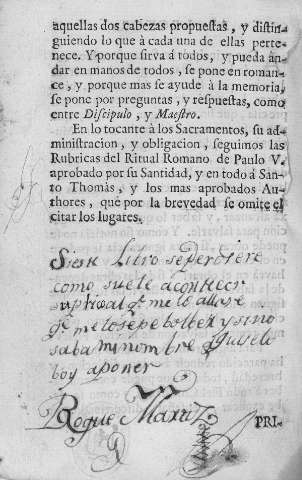 aquellas dos cabezas propuestas, y distin-
guiendo lo que à cada una de ellas perte-
nece. Y porque sirva á todos, y pueda an-
dar en manos de todos, se pone en roman-
ce, y porque mas se ayude à la memoria,
se pone por preguntas, y respuestas, como
entre Discipulo, y Maestro.
En lo tocante à los Sacramentos, su ad-
ministracion, y obligacion, seguimos las
Rubricas del Ritual Romano de Paulo V.
aprobado por su Santidad, y en todo á San-
to Thomàs, y los mas aprobados Au-
thores, que por la brevedad se omite el
citar los lugares.
Sieste Libro seperdiere
como suele acontecer
suplico al q.e me lo allare
q.e me lo sepa bolber y sino
saba mi nombre
boy aponer
Roque
PRI-